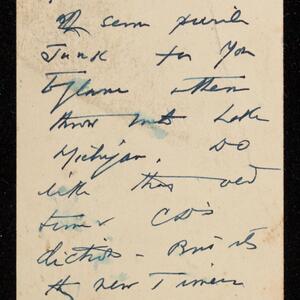 of some
Junk for You
to glance then
throw into Lake
Michigan. Do
like the old
timer CDs
diction - But its
the new Timers